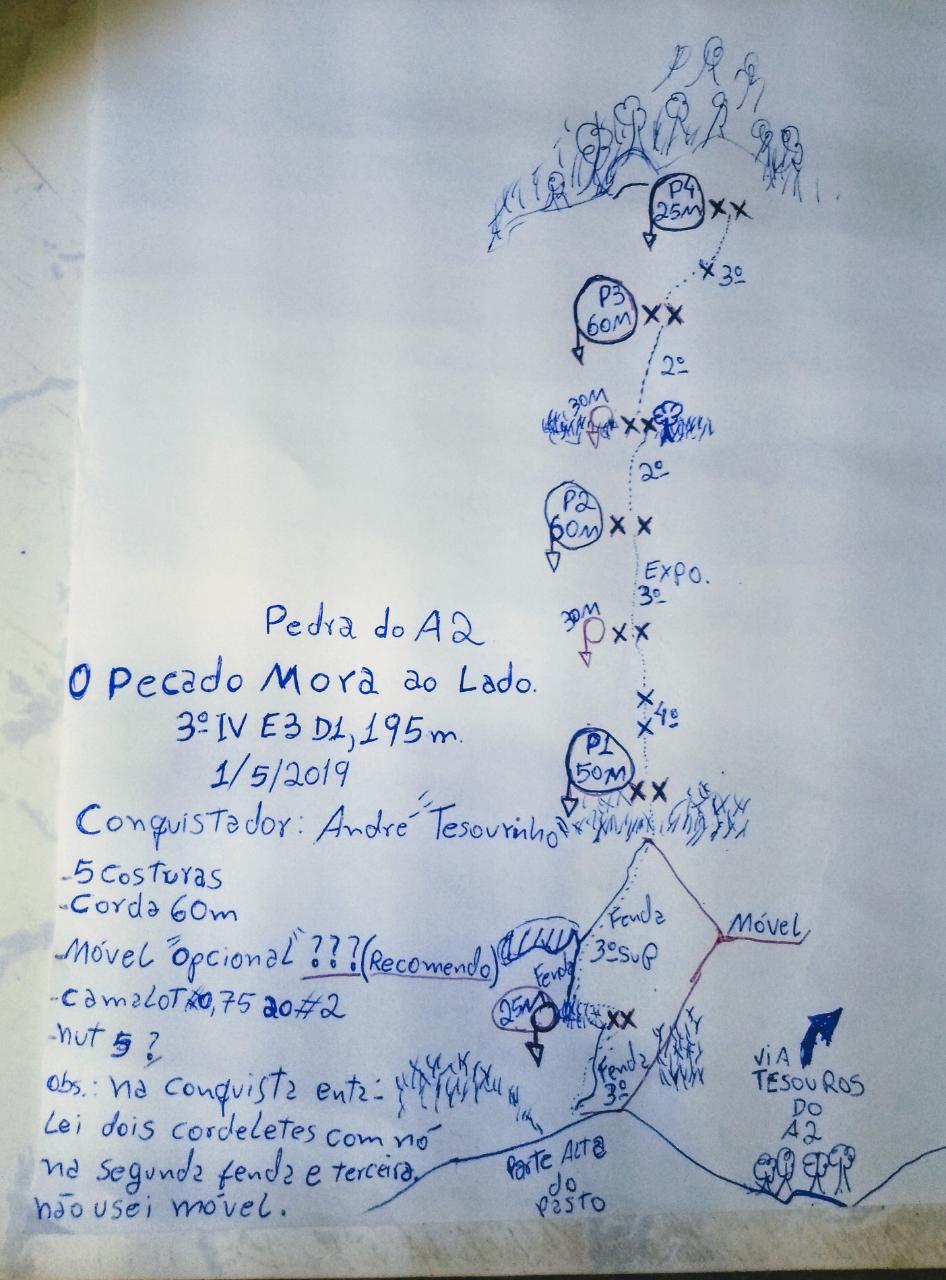 P4
25M
3º
P3
60M
2º
30M
2º
P2
60M
EXPO.
3º
30M
4º
P1
50M
Pedra do A2
O Pecado Mora ao Lado.
3º IV E3 D1, 195m.
1/5/2019
Conquistador: André "Tesourinho"
-5 Costuras
-Corda 60m
-Móvel "opcional" ???(Recomendo)
-Camalot #0,75 ao #2
-nut 5 ?
obs.: na conquista enta-
lei dois cordeletes com nó
na segunda fenda e terceira.
não usei móvel.
Fenda
3ºSUP
Móvel
Fenda
25M
Fenda
3º
Parte Alta
do
Pasto
VIA
TESOUROS
DO
A2